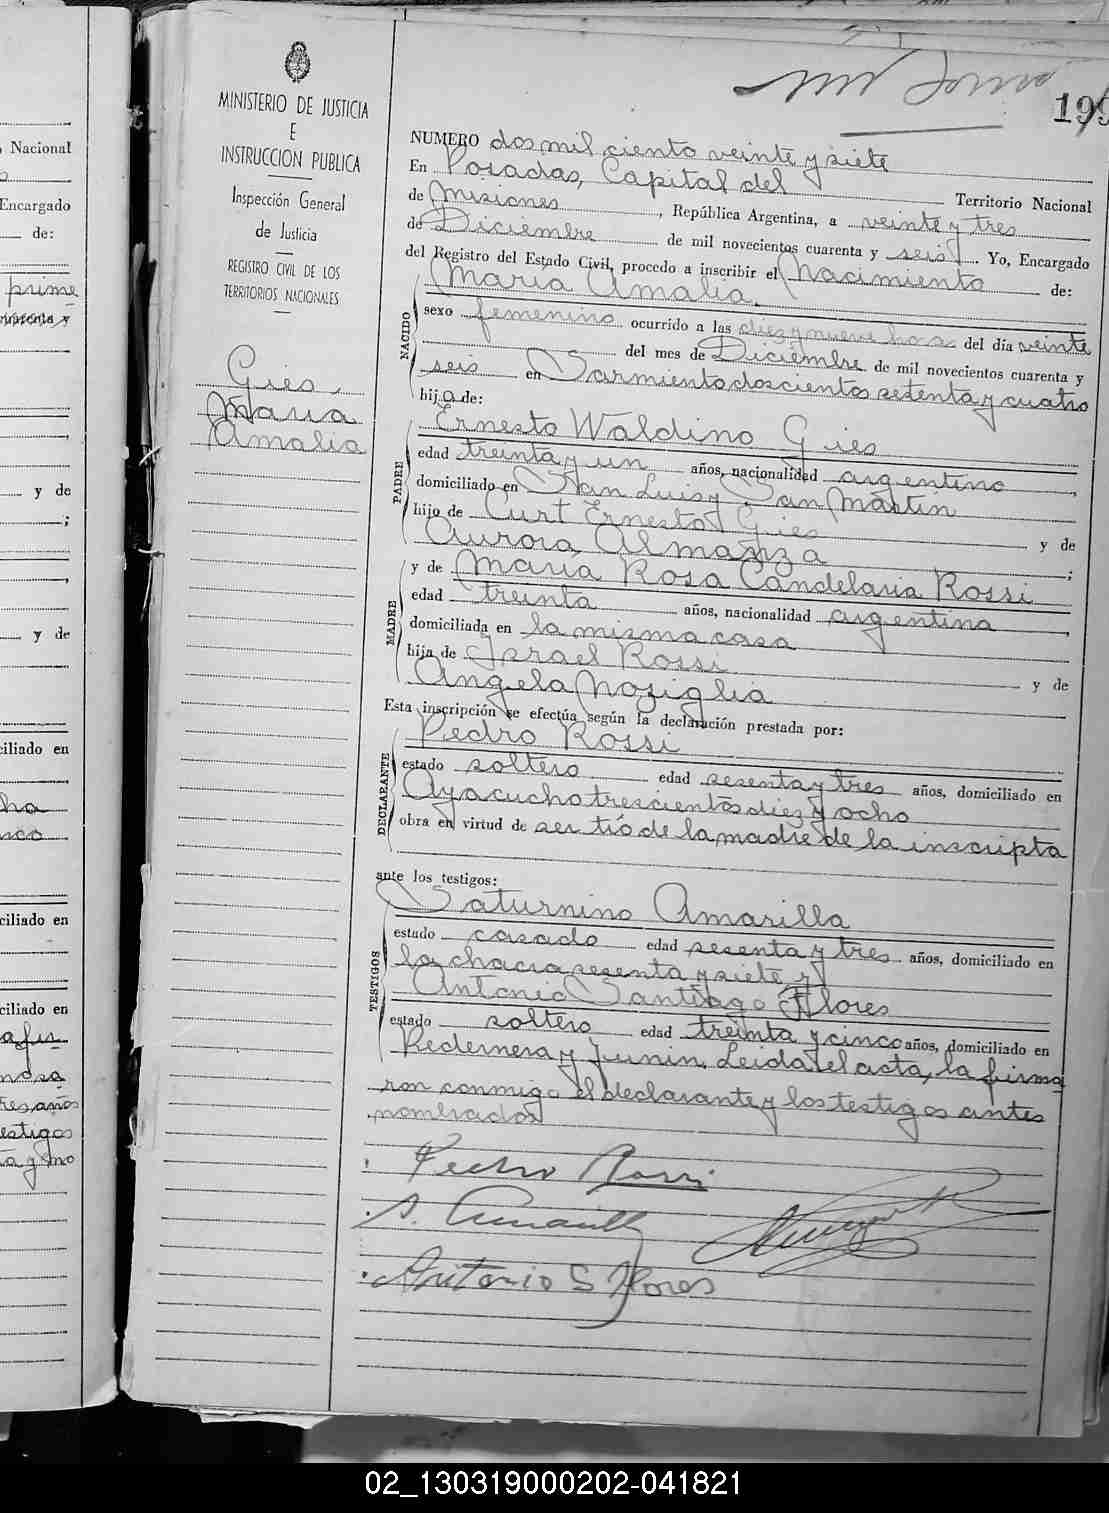 199
MINISTERIO DE JUSTICIA
E
INSTRUCCION PUBLICA
Inspección General
de Justicia
REGISTRO CIVIL DE LOS
TERRITORIOS NACIONALES
Gies,
María
Amalia
NUMERO dos mil ciento veinte y siete
En Posadas, Capital del Territorio Nacional
de Misiones, República Argentina, a veinte y tres
de Diciembre de mil novecientos cuarenta y seis. Yo, Encargado
del Registro del Estado Civil, procedo a inscribir el Nacimiento de:
María Amalia.
NACIDO
sexo femenino ocurrido a las diez y nueve horas del día veinte
del mes de Diciembre de mil novecientos cuarenta y
seis en Sarmiento doscientos setenta y cuatro
hija de:
PADRE
Ernesto Waldino Gies
edad treinta y un años, nacionalidad argentino,
domiciliado en San Luis y San Martín
hijo de Curt Ernesto Gies y de
Aurora Almanza;
MADRE
y de María Rosa Candelaria Rossi
edad treinta años, nacionalidad argentina,
domiciliada en la misma casa
hija de Israel Rossi y de
Angela Noziglia
Esta inscripción se efectúa según la declaración prestada por:
DECLARANTE
Pedro Rossi
estado soltero edad sesenta y tres años, domiciliado en
Ayacucho trescientos diez y ocho
obra en virtud de ser tío de la madre de la inscripta
ante los testigos:
TESTIGOS
Saturnino Amarilla
estado casado edad sesenta y tres años, domiciliado en
la chacra sesenta y siete y
Antonio Santiago Flores
estado soltero edad treinta y cinco años, domiciliado en
Pedernera y Junin. Leida el acta, la firma
ron conmigo el declarante y los testigos antes
nombrados
Pedro Rossi
S. Amarilla
Antonio S Flores
Nacional
Encargado
de:
prime
cuarenta y
y de
;
,
y de
ciliado en
ciliado en
ciliado en
tres años
testigos
02_130319000202-041821